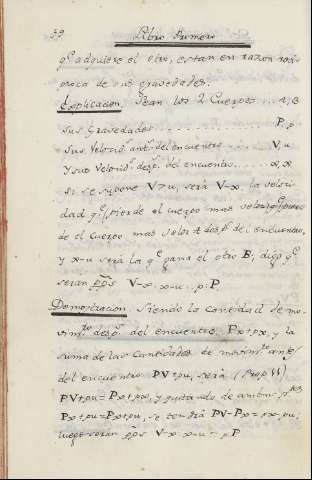 39 Libro Primero
q.e adquiere el otro, estan en razon reci
proca de sus gravedades.
Explicacion. Sean los 2 Cuerpos .... A, B
sus Gravedades .............. P, p
sus Velocid.s ant.s del encuentro ....... V, u
Y sus Velocid.s desp.s del encuentro ..... x, x
si se supone V>u, será V-x, la veloci
dad q.e pierde el cuerpo mas veloz
de el Cuerpo mas veloz desp.s del encuentro,
y x-u será la q.e gana el otro B; digo q.e
seran pp.s V-x : x-u :: p : P
Demostracion. Siendo la cantidad de mo
vim.to desp.s del encuentro Px+px, y la
suma de las cantidades de movim.to antes
del encuentro PV+pu, será (Prop
PV+pu = Px+px, y quitando de ambas p.tes
Px+pu = Px+pu, se tendrá PV-Px = px-pu;
luego seran pp.s V-x : x-u :: p : P